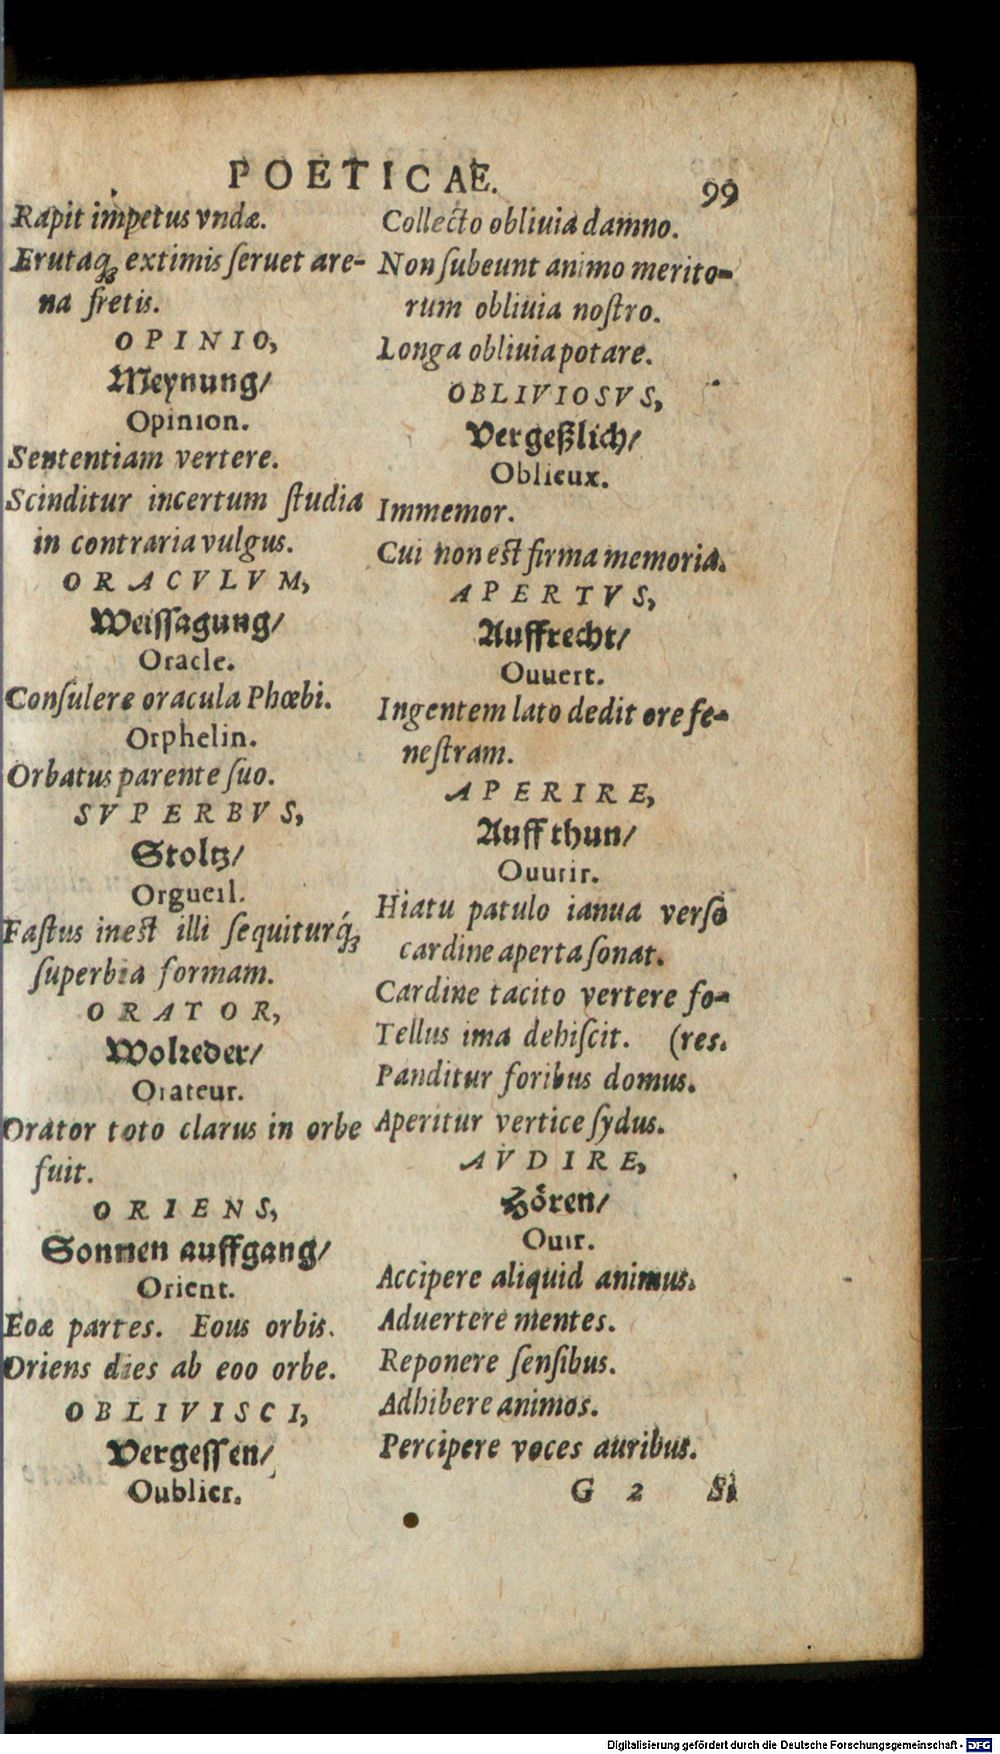 POETICAE.
99
Rapit impetus vndæ.
Erutaq́ꝫ extimis ſeruet are-
na fretis.
OPINIO,
Meynung/
Opinion.
Sententiam vertere.
Scinditur incertum ſtudia
in contraria vulgus.
ORACVLVM,
Weiſſagung/
Oracle.
Conſulere oracula Phœbi.
Orphelin.
Orbatus parente ſuo.
SVPERBVS,
Stoltz/
Orgueil.
Faſtus inest illi ſequiturq́ꝫ
ſuperbia formam.
ORATOR,
Wolreder/
Orateur.
Orator toto clarus in orbe
fuit.
ORIENS,
Sonnen auffgang/
Orient.
Eoæ partes. Eous orbis.
Oriens dies ab eoo orbe.
OBLIVISCI,
Vergeſſen/
Oublier.
Collecto obliuia damno.
Non ſubeunt animo merito-
rum obliuia noſtro.
Longa obliuia potare.
OBLIVIOSVS,
Vergeßlich/
Oblieux.
Immemor.
Cui non est firma memoria.
APERTVS,
Auffrecht/
Ouuert.
Ingentem lato dedit ore fe-
neſtram.
APERIRE,
Auff thun/
Ouurir.
Hiatu patulo ianua verſo
cardine aperta ſonat.
Cardine tacito vertere fo-
Tellus ima dehiſcit. (res.
Panditur foribus domus.
Aperitur vertice ſydus.
AVDIRE,
Hören/
Ouir.
Accipere aliquid animus.
Aduertere mentes.
Reponere ſenſibus.
Adhibere animos.
Percipere voces auribus.
G 2 Si
Digitalisierung gefördert durch die Deutsche Forschungsgemeinschaft - DFG